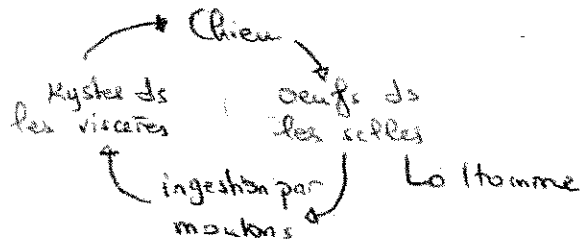 Chien
Kystes ds
les viscères
oeufs ds
les selles
ingestion par
moutons
Homme